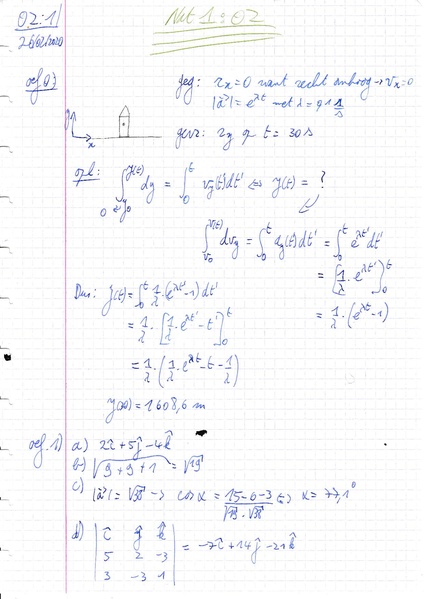 02:1/
26/02/2020
Nat 1: 02
oef 0.3
geg: r_x = 0 want recht omhoog → v_x = 0
|a⃗| = e^{λt} met λ = 0,1 1/s
y
x
gevr: r_y op t = 30 s
opl: ∫_{0 ← y_0}^{y(t)} dy = ∫_0^t v_y(t') dt' ⇔ y(t) = ?
∫_{v_0}^{v(t)} dv_y = ∫_0^t a_y(t') dt' = ∫_0^t e^{λt'} dt'
= [1/λ · e^{λt'}]_0^t
= 1/λ · (e^{λt} - 1)
Dus: y(t) = ∫_0^t 1/λ · (e^{λt'} - 1) dt'
= 1/λ · [1/λ · e^{λt'} - t']_0^t
= 1/λ · (1/λ · e^{λt} - t - 1/λ)
y(30) = 1608,6 m
oef. 1) a) 2î + 5ĵ - 4k̂
b) √(9 + 9 + 1) = √19
c) |a⃗| = √38 → cos α = (15 - 6 - 3)/(√19 · √38) ⇔ α = 77,1°
d) | î ĵ k̂ |
| 5 2 -3 | = -7î + 14ĵ - 21k̂
| 3 -3 1 |